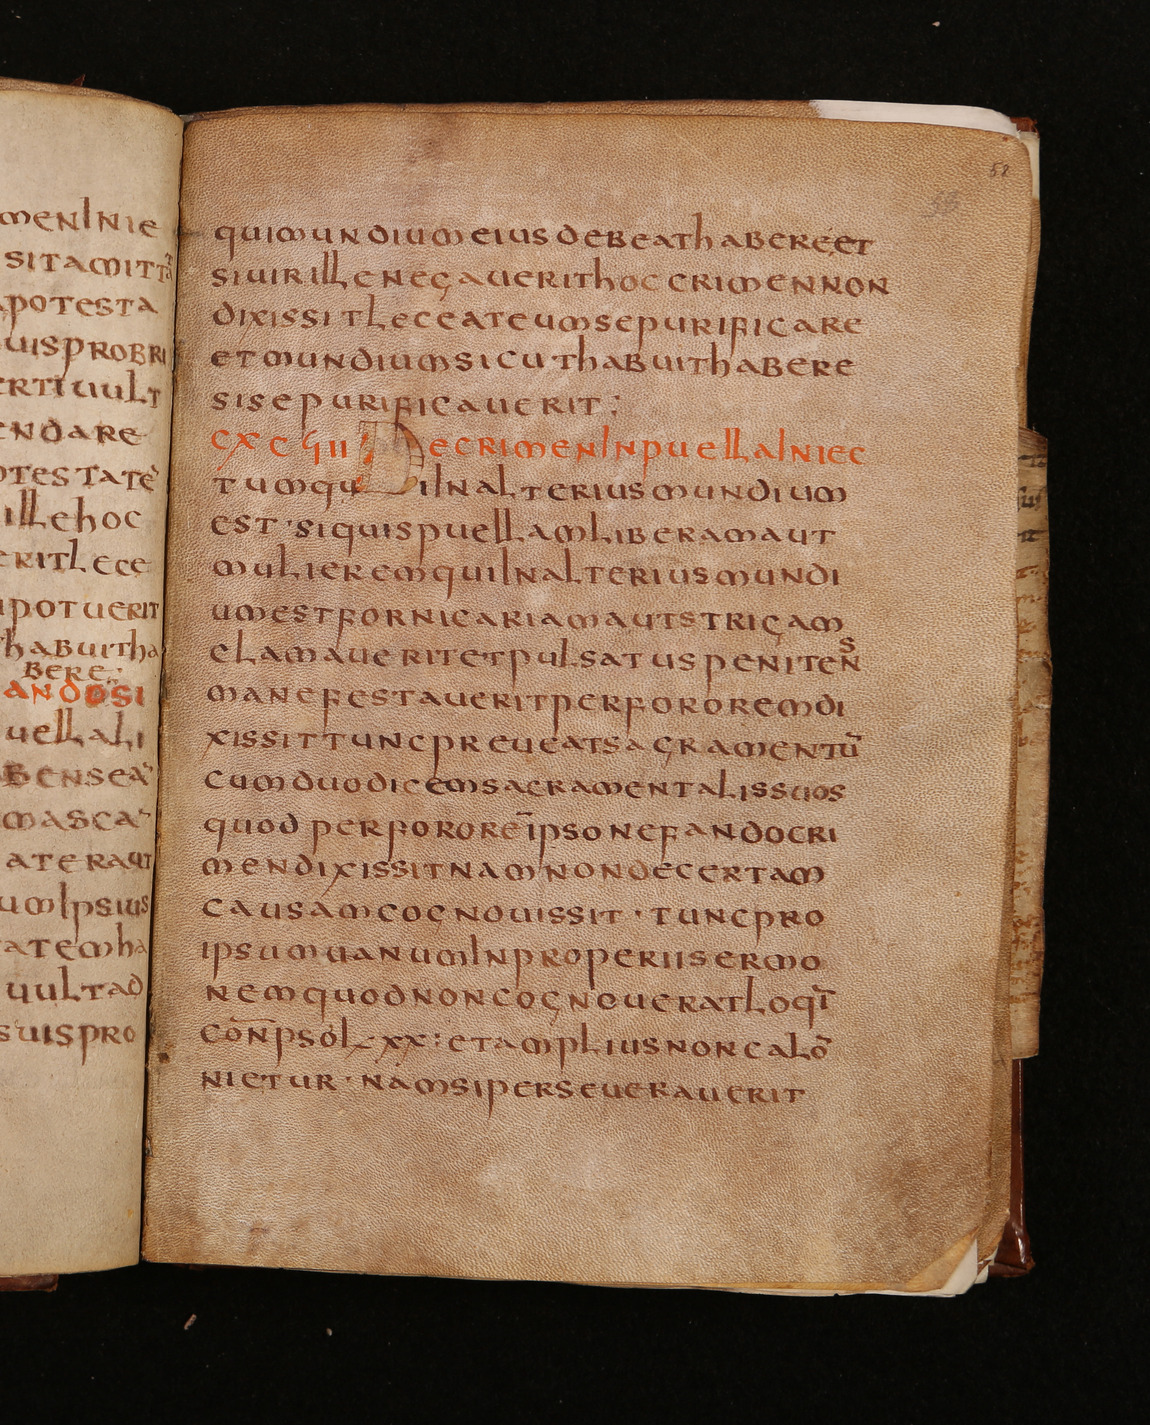 menInie
sitamittā
potesta
uisprobri
ertiuult
endare
otestatē
illehoc
eritlece
potuerit
habuitha
bere
andosi
uellali
benseā
masca
ateraut
umIpsius
atemha
uultad
suispro
52
53
quimundiumeiusdebeathabereet
siuirillenegauerithoccrimennon
dixissitleceateumsepurificare
etmundiumsicuthabuithabere
sisepurificauerit:
cxcꝗii DecrimenInpuellaIniec
tumquiInalteriusmundium
est·siquispuellamliberamaut
mulieremquiInalteriusmundi
umestfornicariamautstrigam
clamaueritetpulsatuspenitens
manefestaueritperfororemdi
xissittuncpreueatsagramentū
cumduodicemsacramentalissuos
quodperfororēipsonefandocri
mendixissitnamnondecertam
causamcognouissit·tuncpro
ipsumuanumInproperiisermo
nemquodnoncognoueratloqī
cōnpsol·xx:etampliusnoncalō
nietur·namsiperseuerauerit